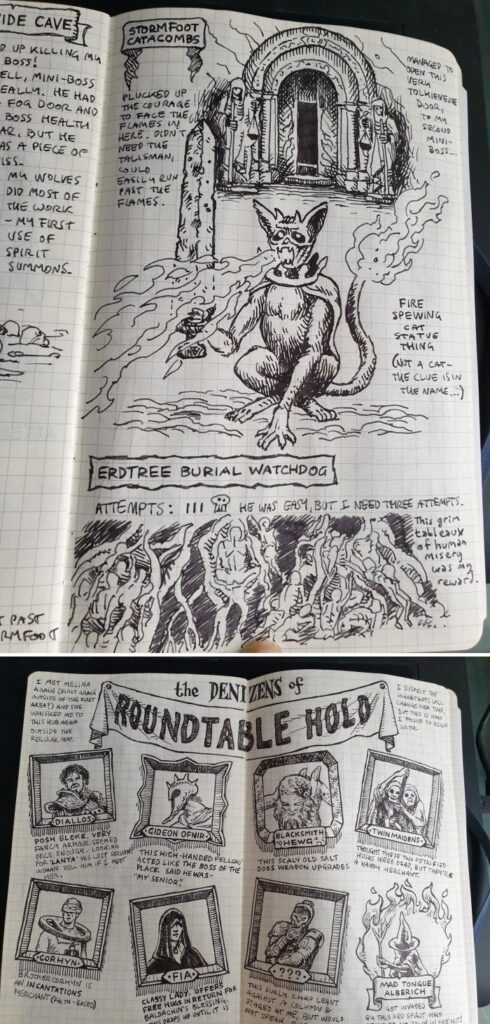 IDE CAVE
UP KILLING MY
BOSS!
ELL, MINI-BOSS
EALLY. HE HAD
FOR DOOR AND
BOSS HEALTH
AR, BUT HE
AS A PIECE OF
ISS.
MY WOLVES
DID MOST OF
THE WORK
- MY FIRST
USE OF
SPIRIT
SUMMONS.
PAST
STORMFOOT
CATACOMBS
PLUCKED UP
THE COURAGE
TO FACE THE
FLAMES IN
HERE. DIDN'T
NEED THE
TALISMAN,
COULD
EASILY RUN
PAST THE
FLAMES.
MANAGED TO
OPEN THIS
VERY
TOLKIENESQUE
DOOR,
TO MY
SECOND
MINI-
BOSS...
FIRE
SPEWING
CAT
STATUE
THING
(NOT A CAT-
THE CLUE IS IN
THE NAME...)
ERDTREE BURIAL WATCHDOG
ATTEMPTS: III HE WAS EASY, BUT I NEED THREE ATTEMPTS.
This grim
tableaux
of human
misery
was my
reward.
I MET MELINA
AGAIN (FIRST GRACE
OUTSIDE OF THE FIRST
AREA?) AND SHE
WHISKED ME TO
THIS HUB AREA
OUTSIDE THE
REGULAR MAP.
the DENIZENS of
ROUNDTABLE HOLD
I SUSPECT THE
INHABITANTS WILL
CHANGE OVER TIME,
BUT THIS IS WHO
I FOUND TO BEGIN
WITH.
DIALLOS
POSH BLOKE, VERY
FANCY ARMOUR. SEEMED
NICE ENOUGH. LOOKING
FOR 'LANYA' HIS LOST SERVANT
WOMAN. TELL HIM IF I MEET
HER.
GIDEON OFNIR
THIS HIGH-HANDED FELLOW
ACTED LIKE THE BOSS OF THE
PLACE. SAID HE WAS-
"MY SENIOR".
BLACKSMITH
HEWG
THIS SCALY OLD SALT
DOES WEAPON UPGRADES
TWIN MAIDENS
THOUGHT THESE TWO PETRIFIED
HUSKS WERE DEAD, BUT THEY'RE
A HANDY MERCHANT.
CORHYN
BROTHER CORHYN IS
AN INCANTATIONS
MERCHANT (FAITH-BASED)
FIA
CLASSY LADY. OFFERS
FREE HUGS IN RETURN FOR
BALDACHIN'S BLESSING.
DROPS HP UNTIL IT IS
???
THIS SURLY CHAP LEANT
AGAINST A COLUMN &
AT ME, BUT WOULD
NOT SPEAK
MAD TONGUE
ALBERICH
GOT INVADED
BY THIS RED SPIRIT WHO